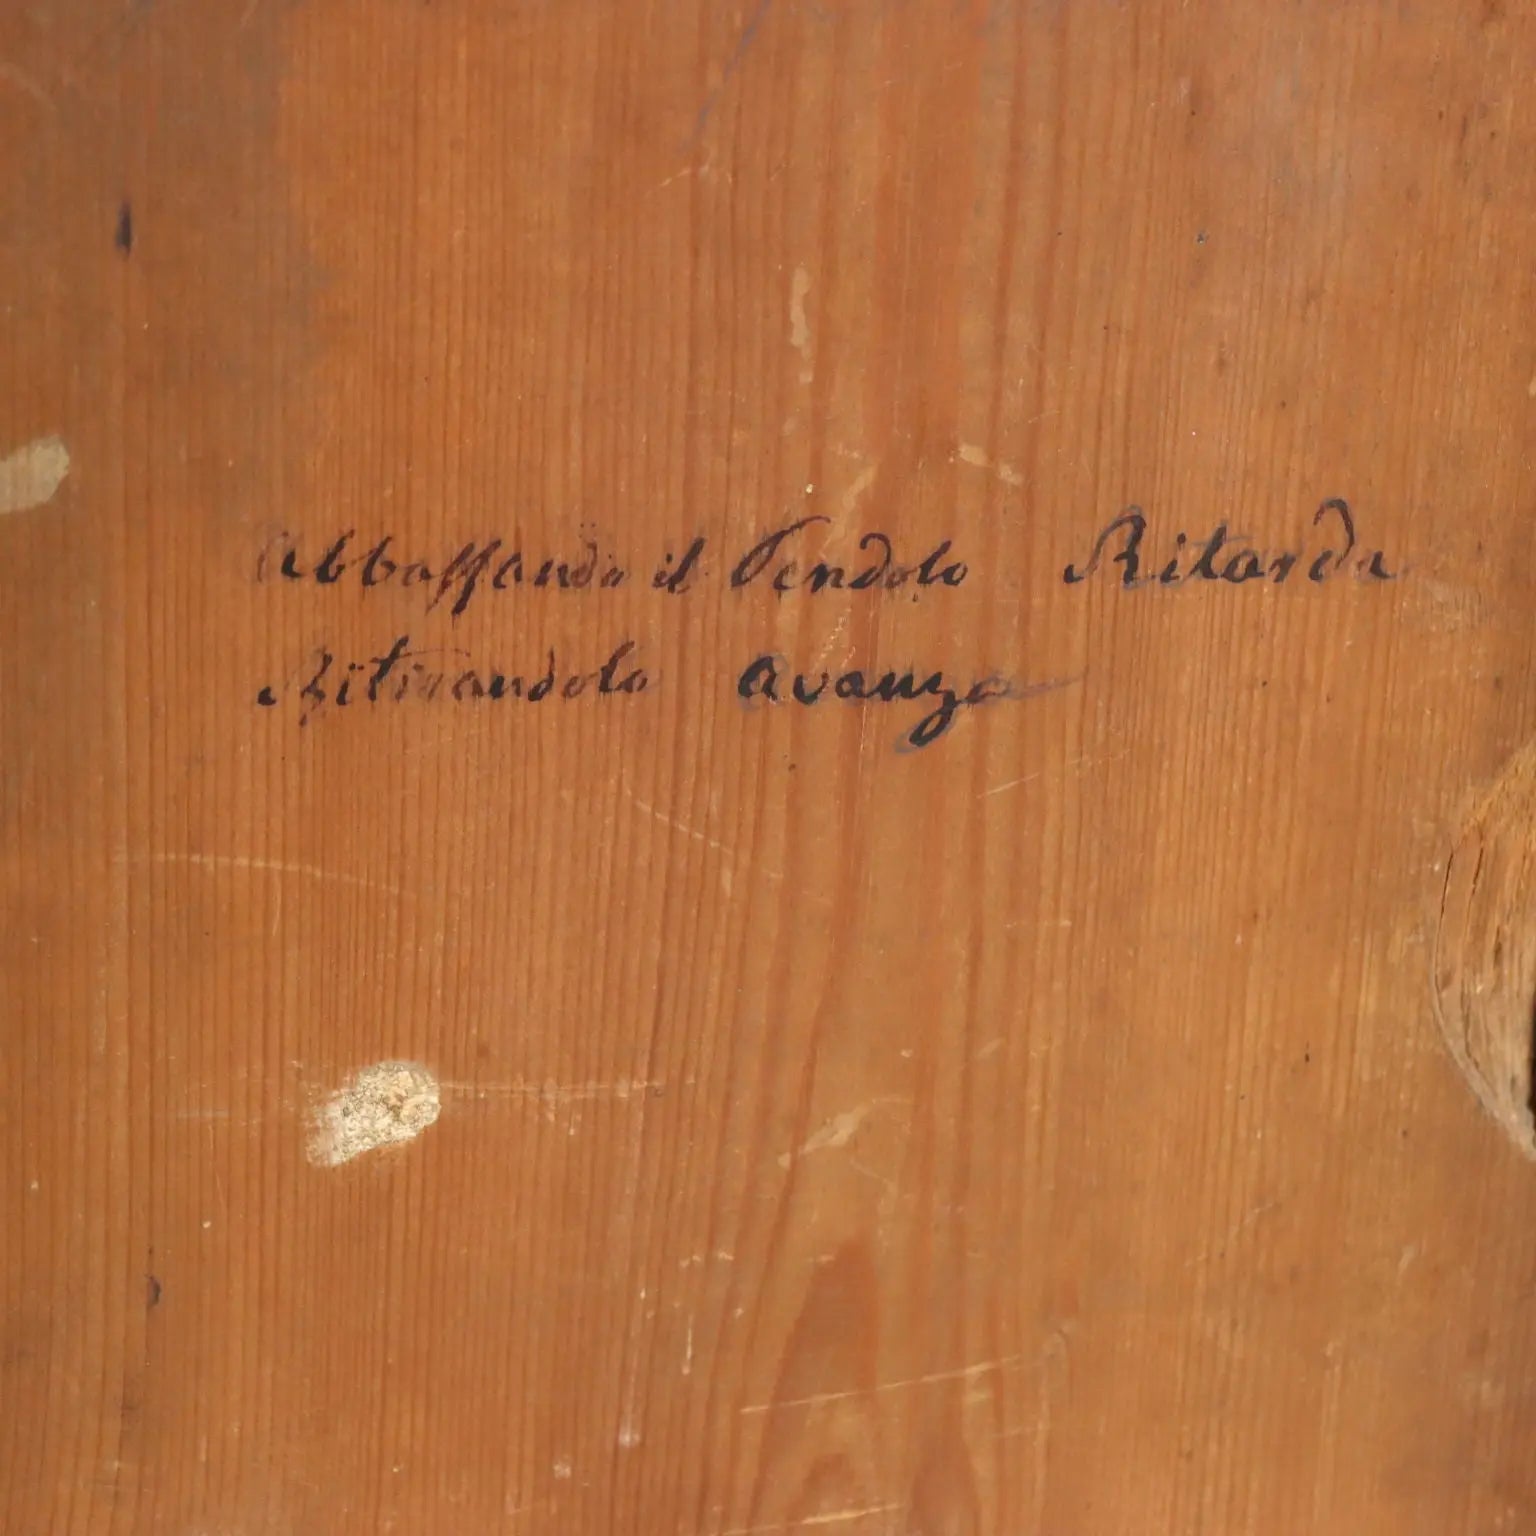 Abbassando il Pendolo Ritarda
Ritirandolo avanza